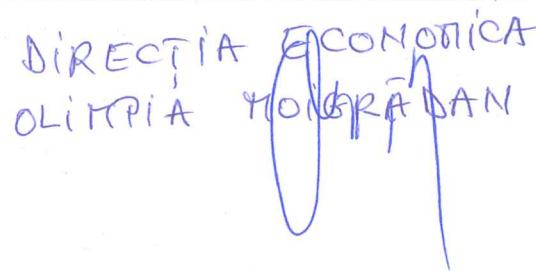 DIRECȚIA ECONOMICA
OLIMPIA MOIGRĂDAN